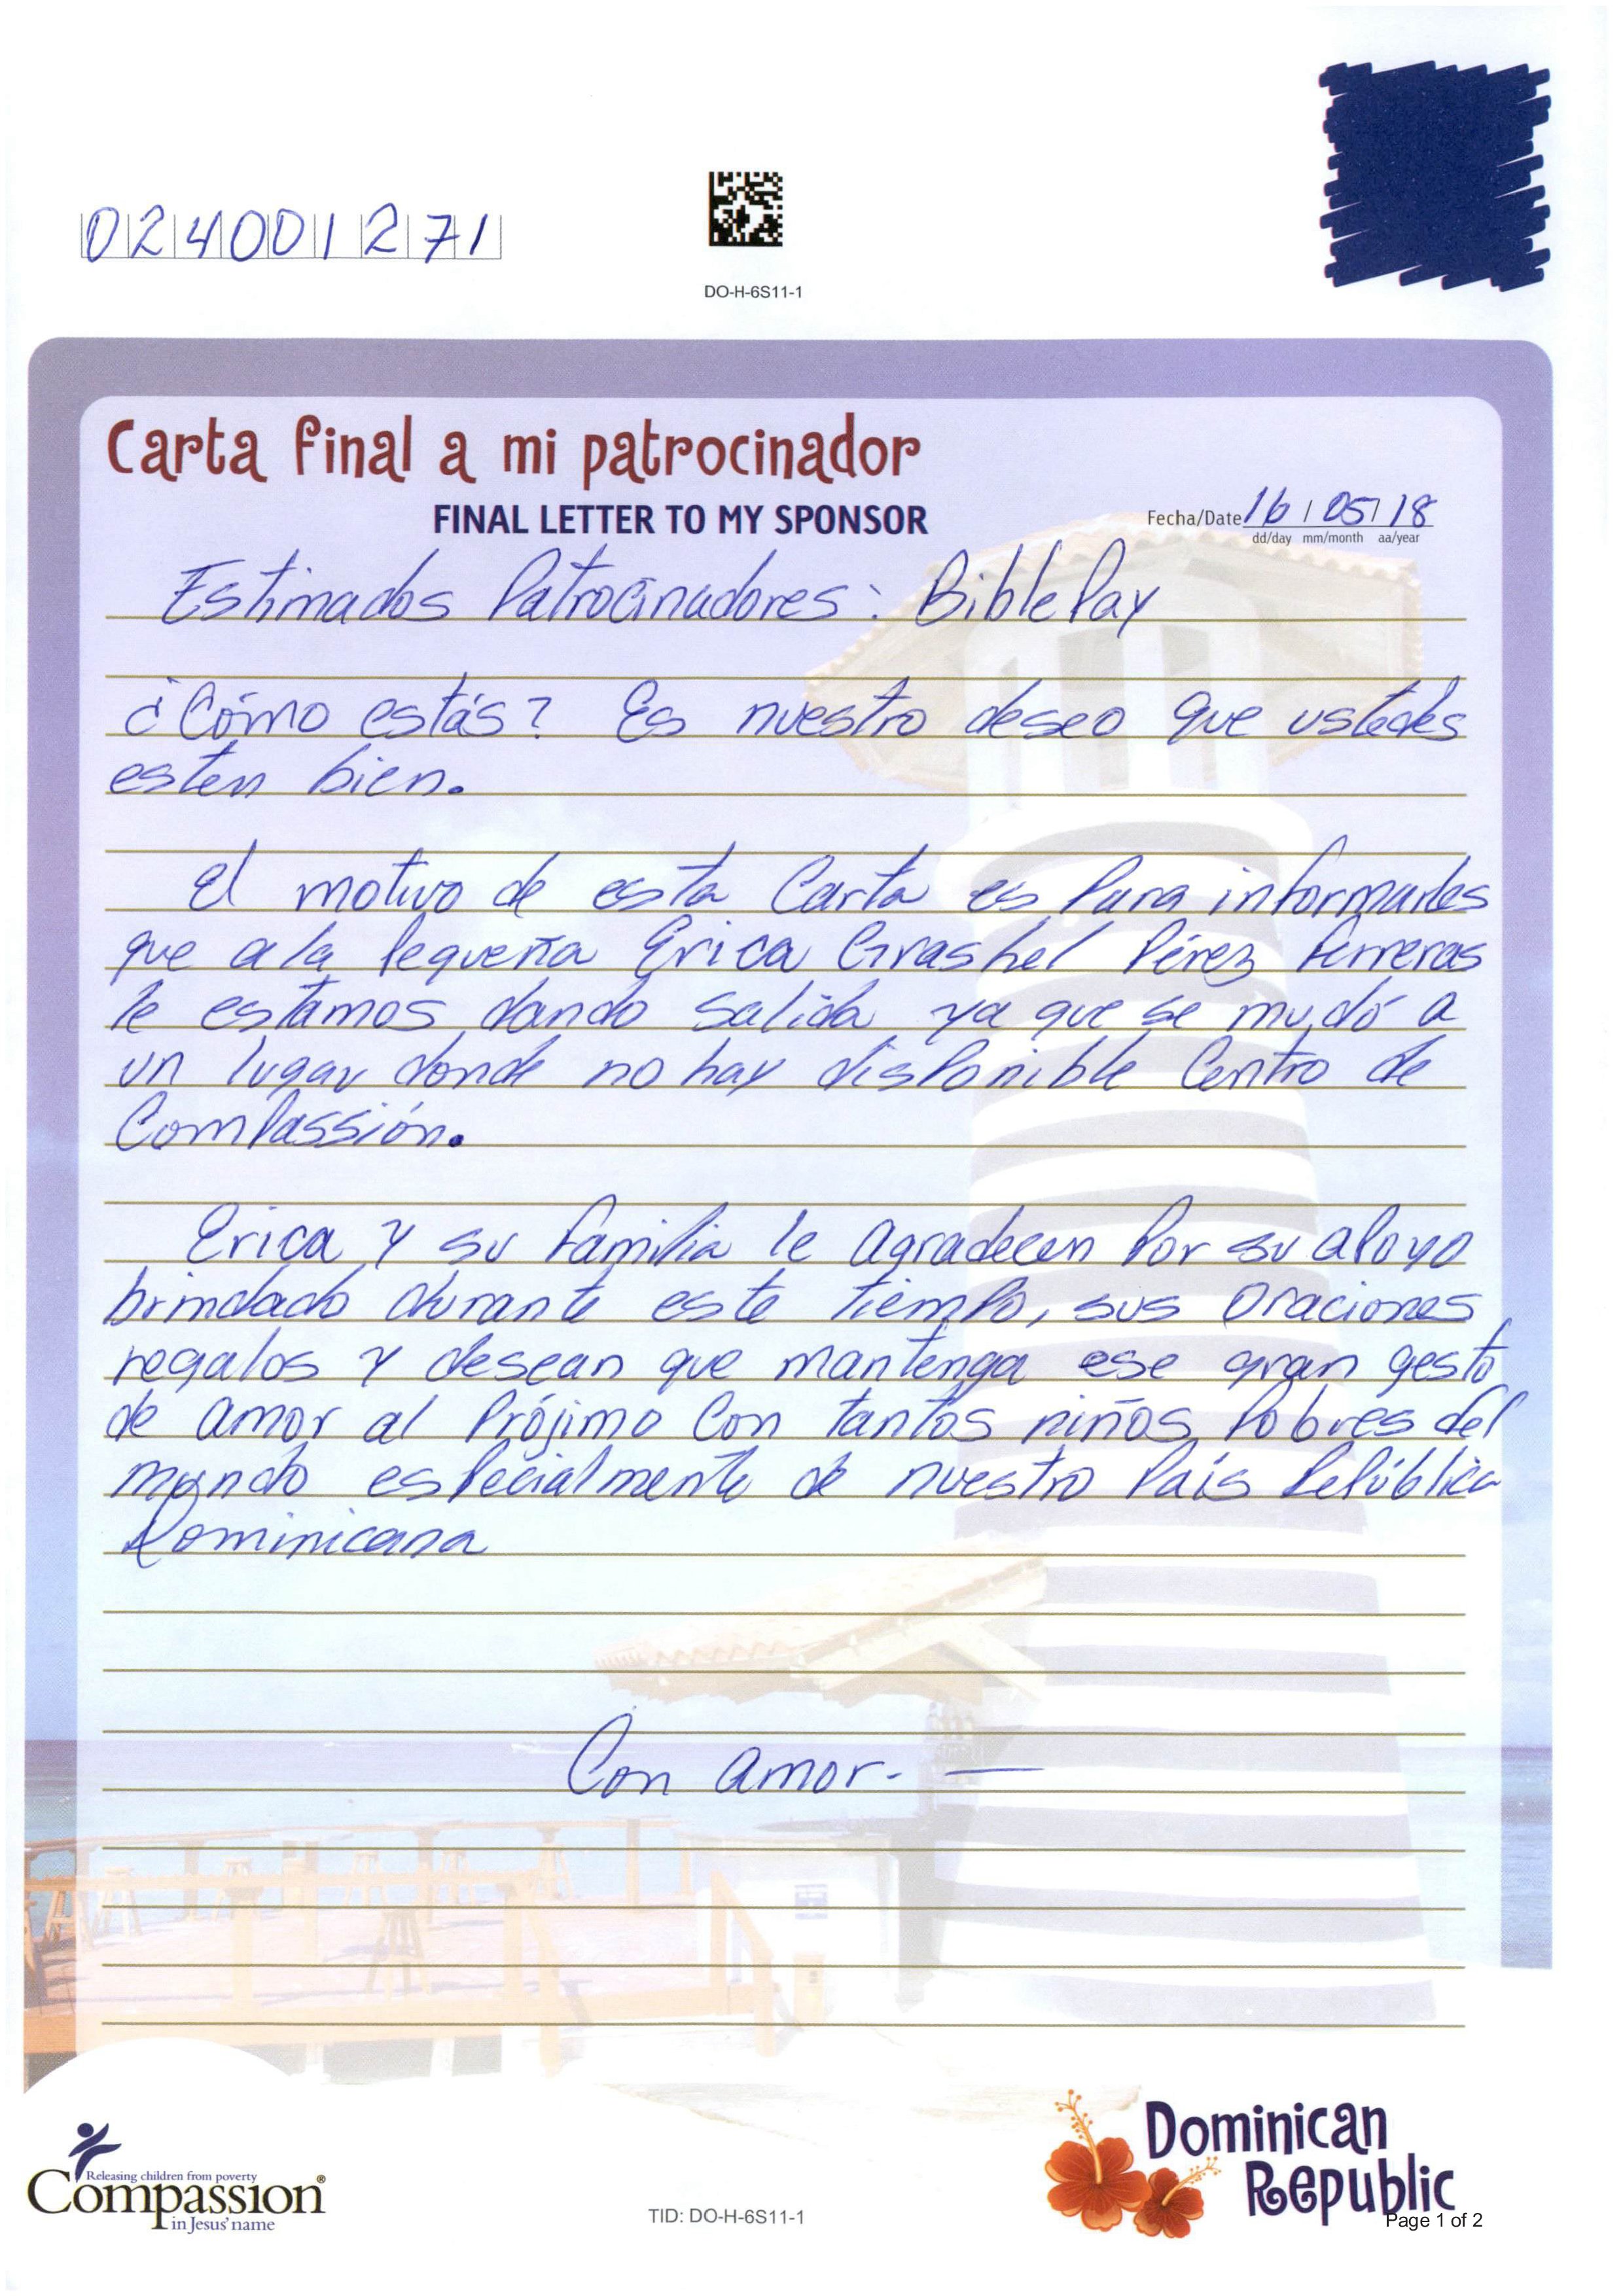 024001271
DO-H-6S11-1
Carta final a mi patrocinador
FINAL LETTER TO MY SPONSOR
Fecha/Date 16 / 05 / 18
dd/day mm/month aa/year
Estimados Patrocinadores: BiblePay
¿Cómo estás? Es nuestro deseo que ustedes
esten bien.
El motivo de esta Carta es Para informarles
que a la Pequeña Erica Grashel Pérez Ferreras
le estamos dando salida ya que se mudó a
un lugar donde no hay disponible Centro de
Compassión.
Erica y su familia le agradecen Por su apoyo
brindado durante este tiempo, sus oraciones,
regalos y desean que mantenga ese gran gesto
de amor al Prójimo Con tantos niños Pobres del
mundo especialmente de nuestro País República
Dominicana
Con amor. —
Releasing children from poverty
Compassion®
in Jesus' name
TID: DO-H-6S11-1
Dominican
Republic
Page 1 of 2